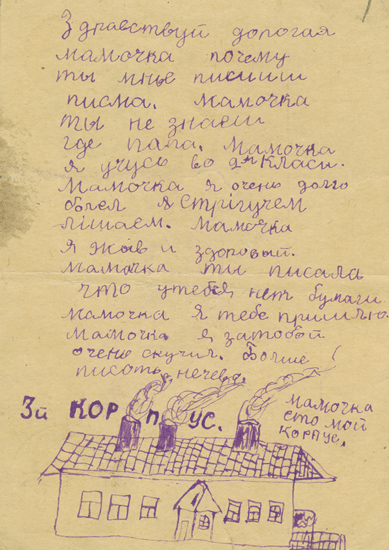 Здравствуй дорогая
мамочка почему
ты мнье пишиш
писма. Мамочка
ты не знаеш
где папа. Мамочка
я учусь во 2м класи.
Мамочка я очень долго
болел я стрігучем
лішаем. Мамочка
я жив и здоровый.
мамочка ты писала
что утебя нет бумаги
мамочка я тебе пришлю.
мамочка я затобой
очень скучил. больше
писать нечево!
3й КОРПУС.
мамочка
ето мой
корпус.